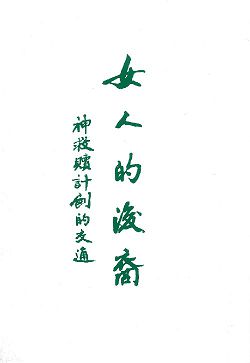 女人的後裔
神救贖計劃的交通